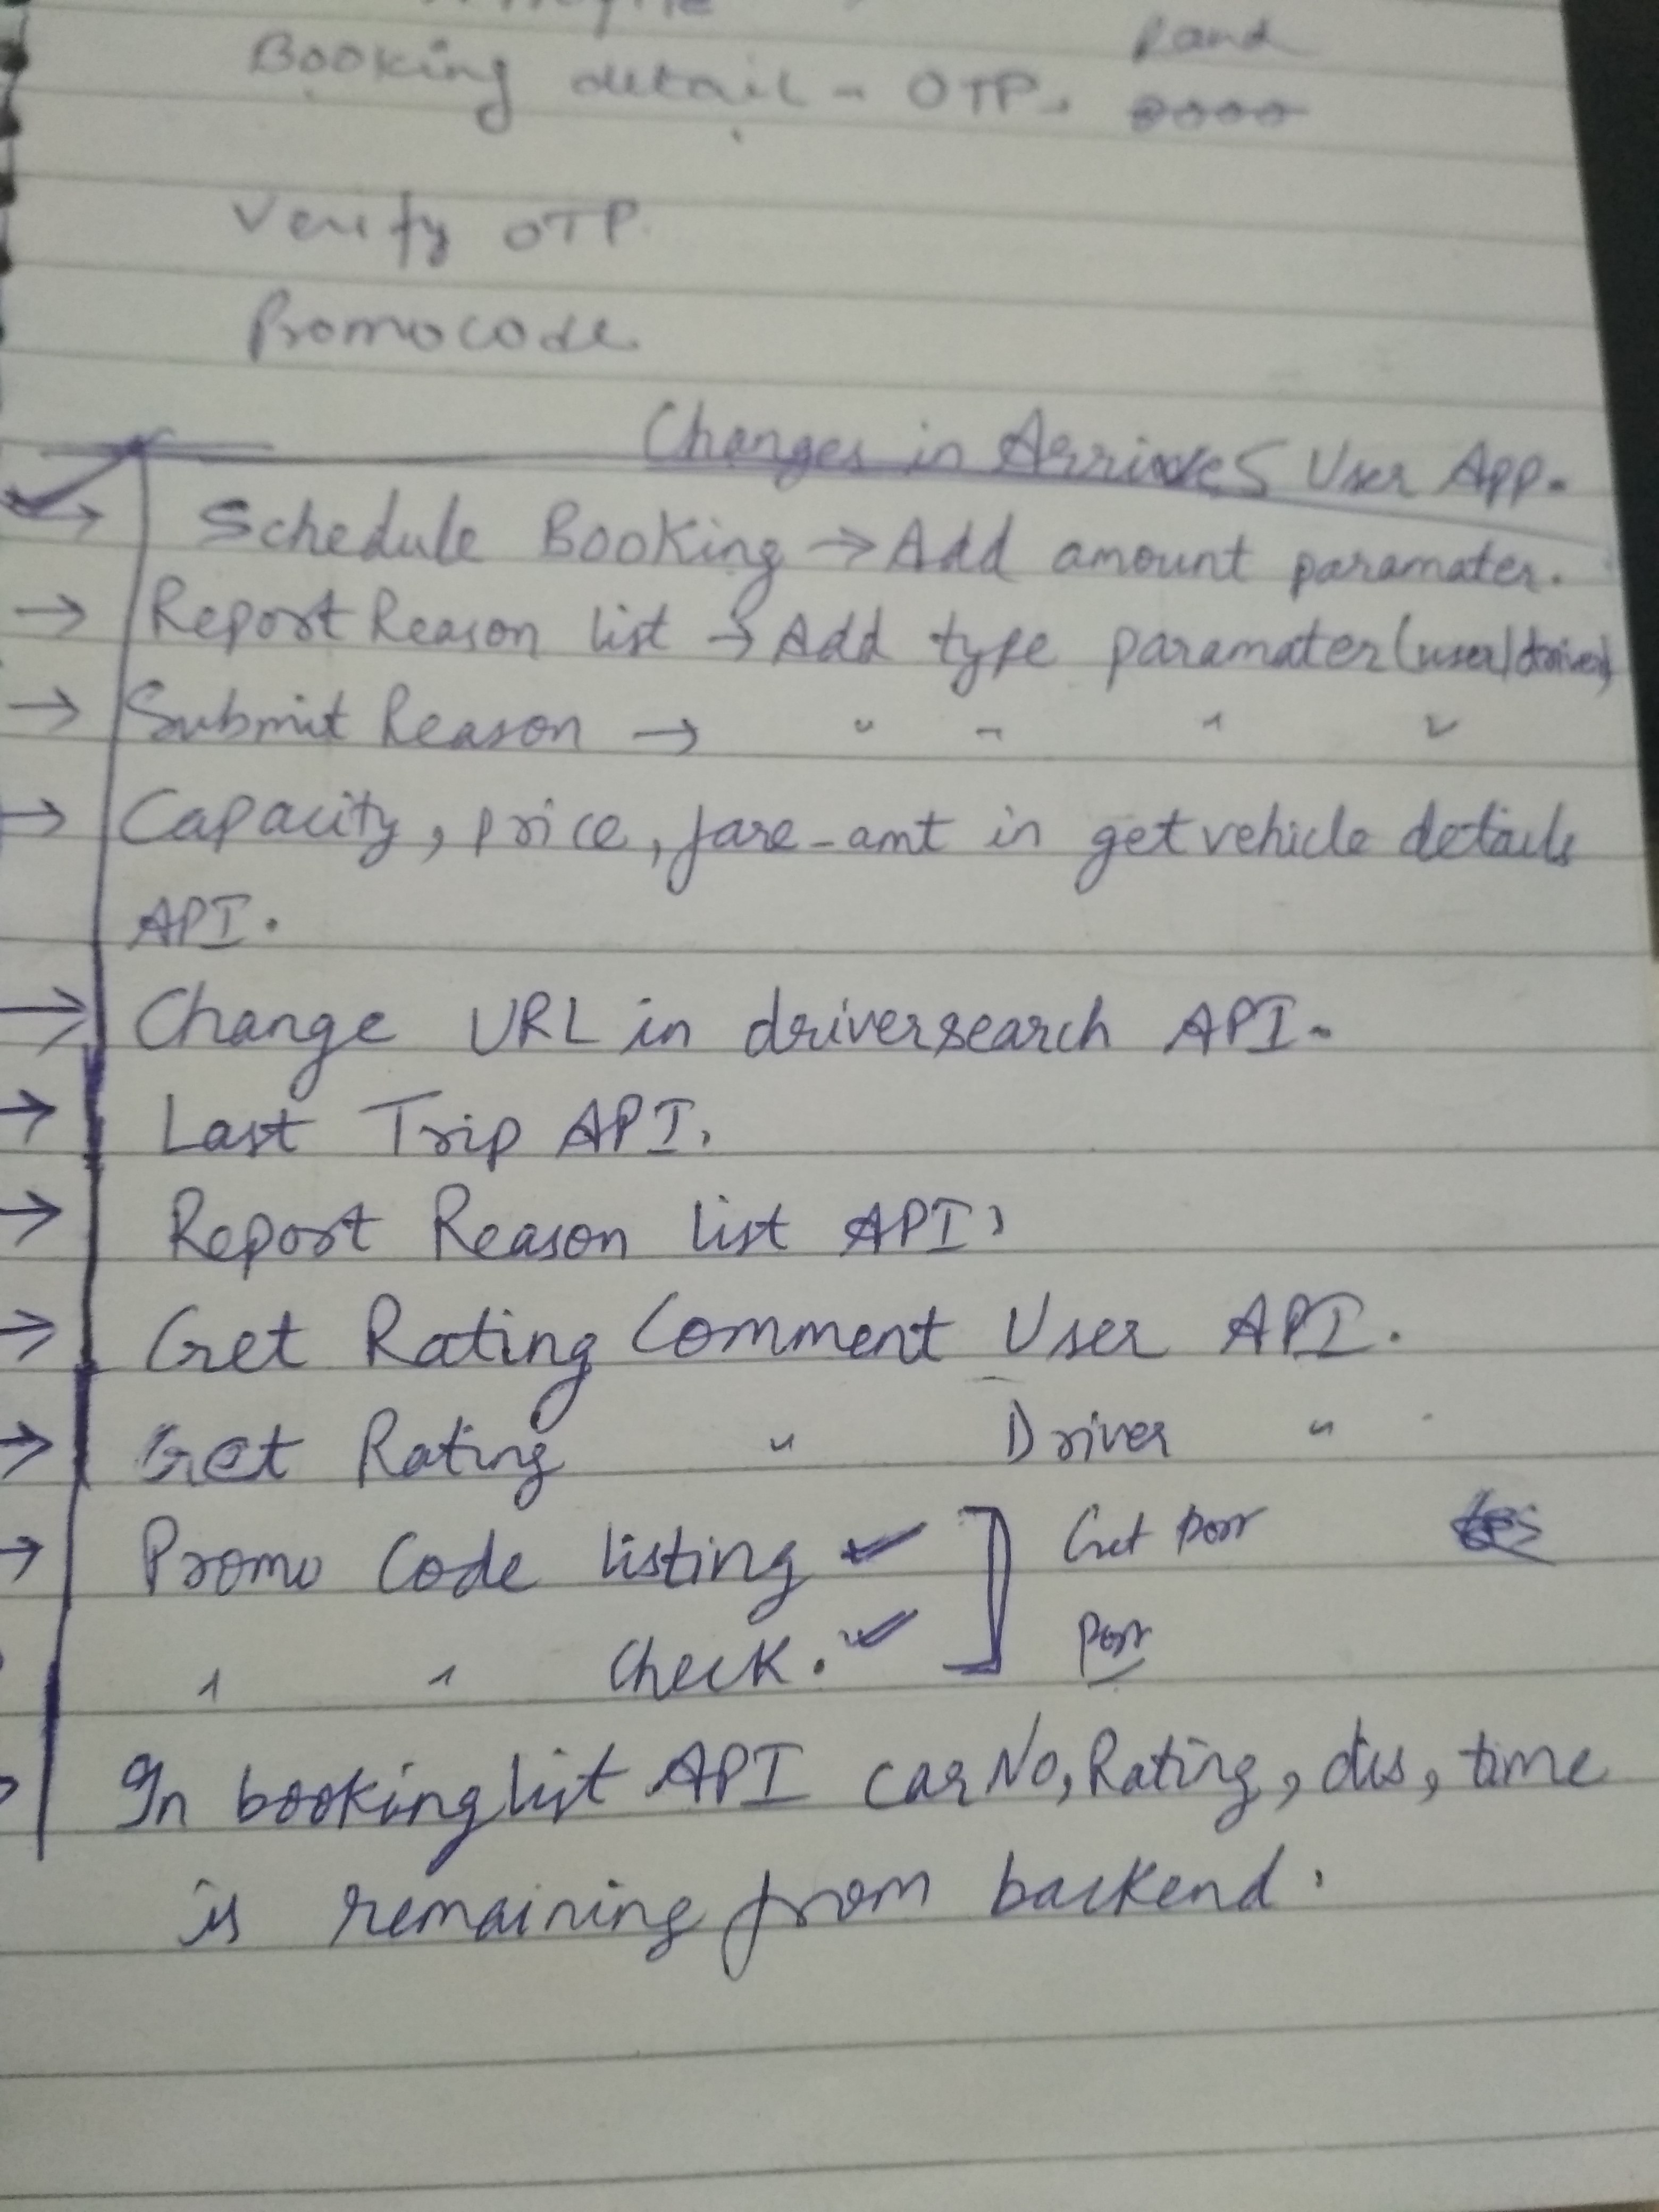 Booking detail - OTP.
Verify OTP.
Promocode
Changes in Arrives User App.
→ Schedule Booking → Add amount paramater.
→ Report Reason list → Add type paramater (user/driver)
→ Submit Reason → " " " "
→ Capacity, price, fare-amt in get vehicle details
API.
→ Change URL in driversearch API.
→ Last Trip API.
→ Report Reason list API.
→ Get Rating Comment User API.
→ Get Rating " Driver "
→ Promo Code listing ✓ ] Get
" " Check. ✓
In booking list API car No, Rating, dis, time
is remaining from backend.